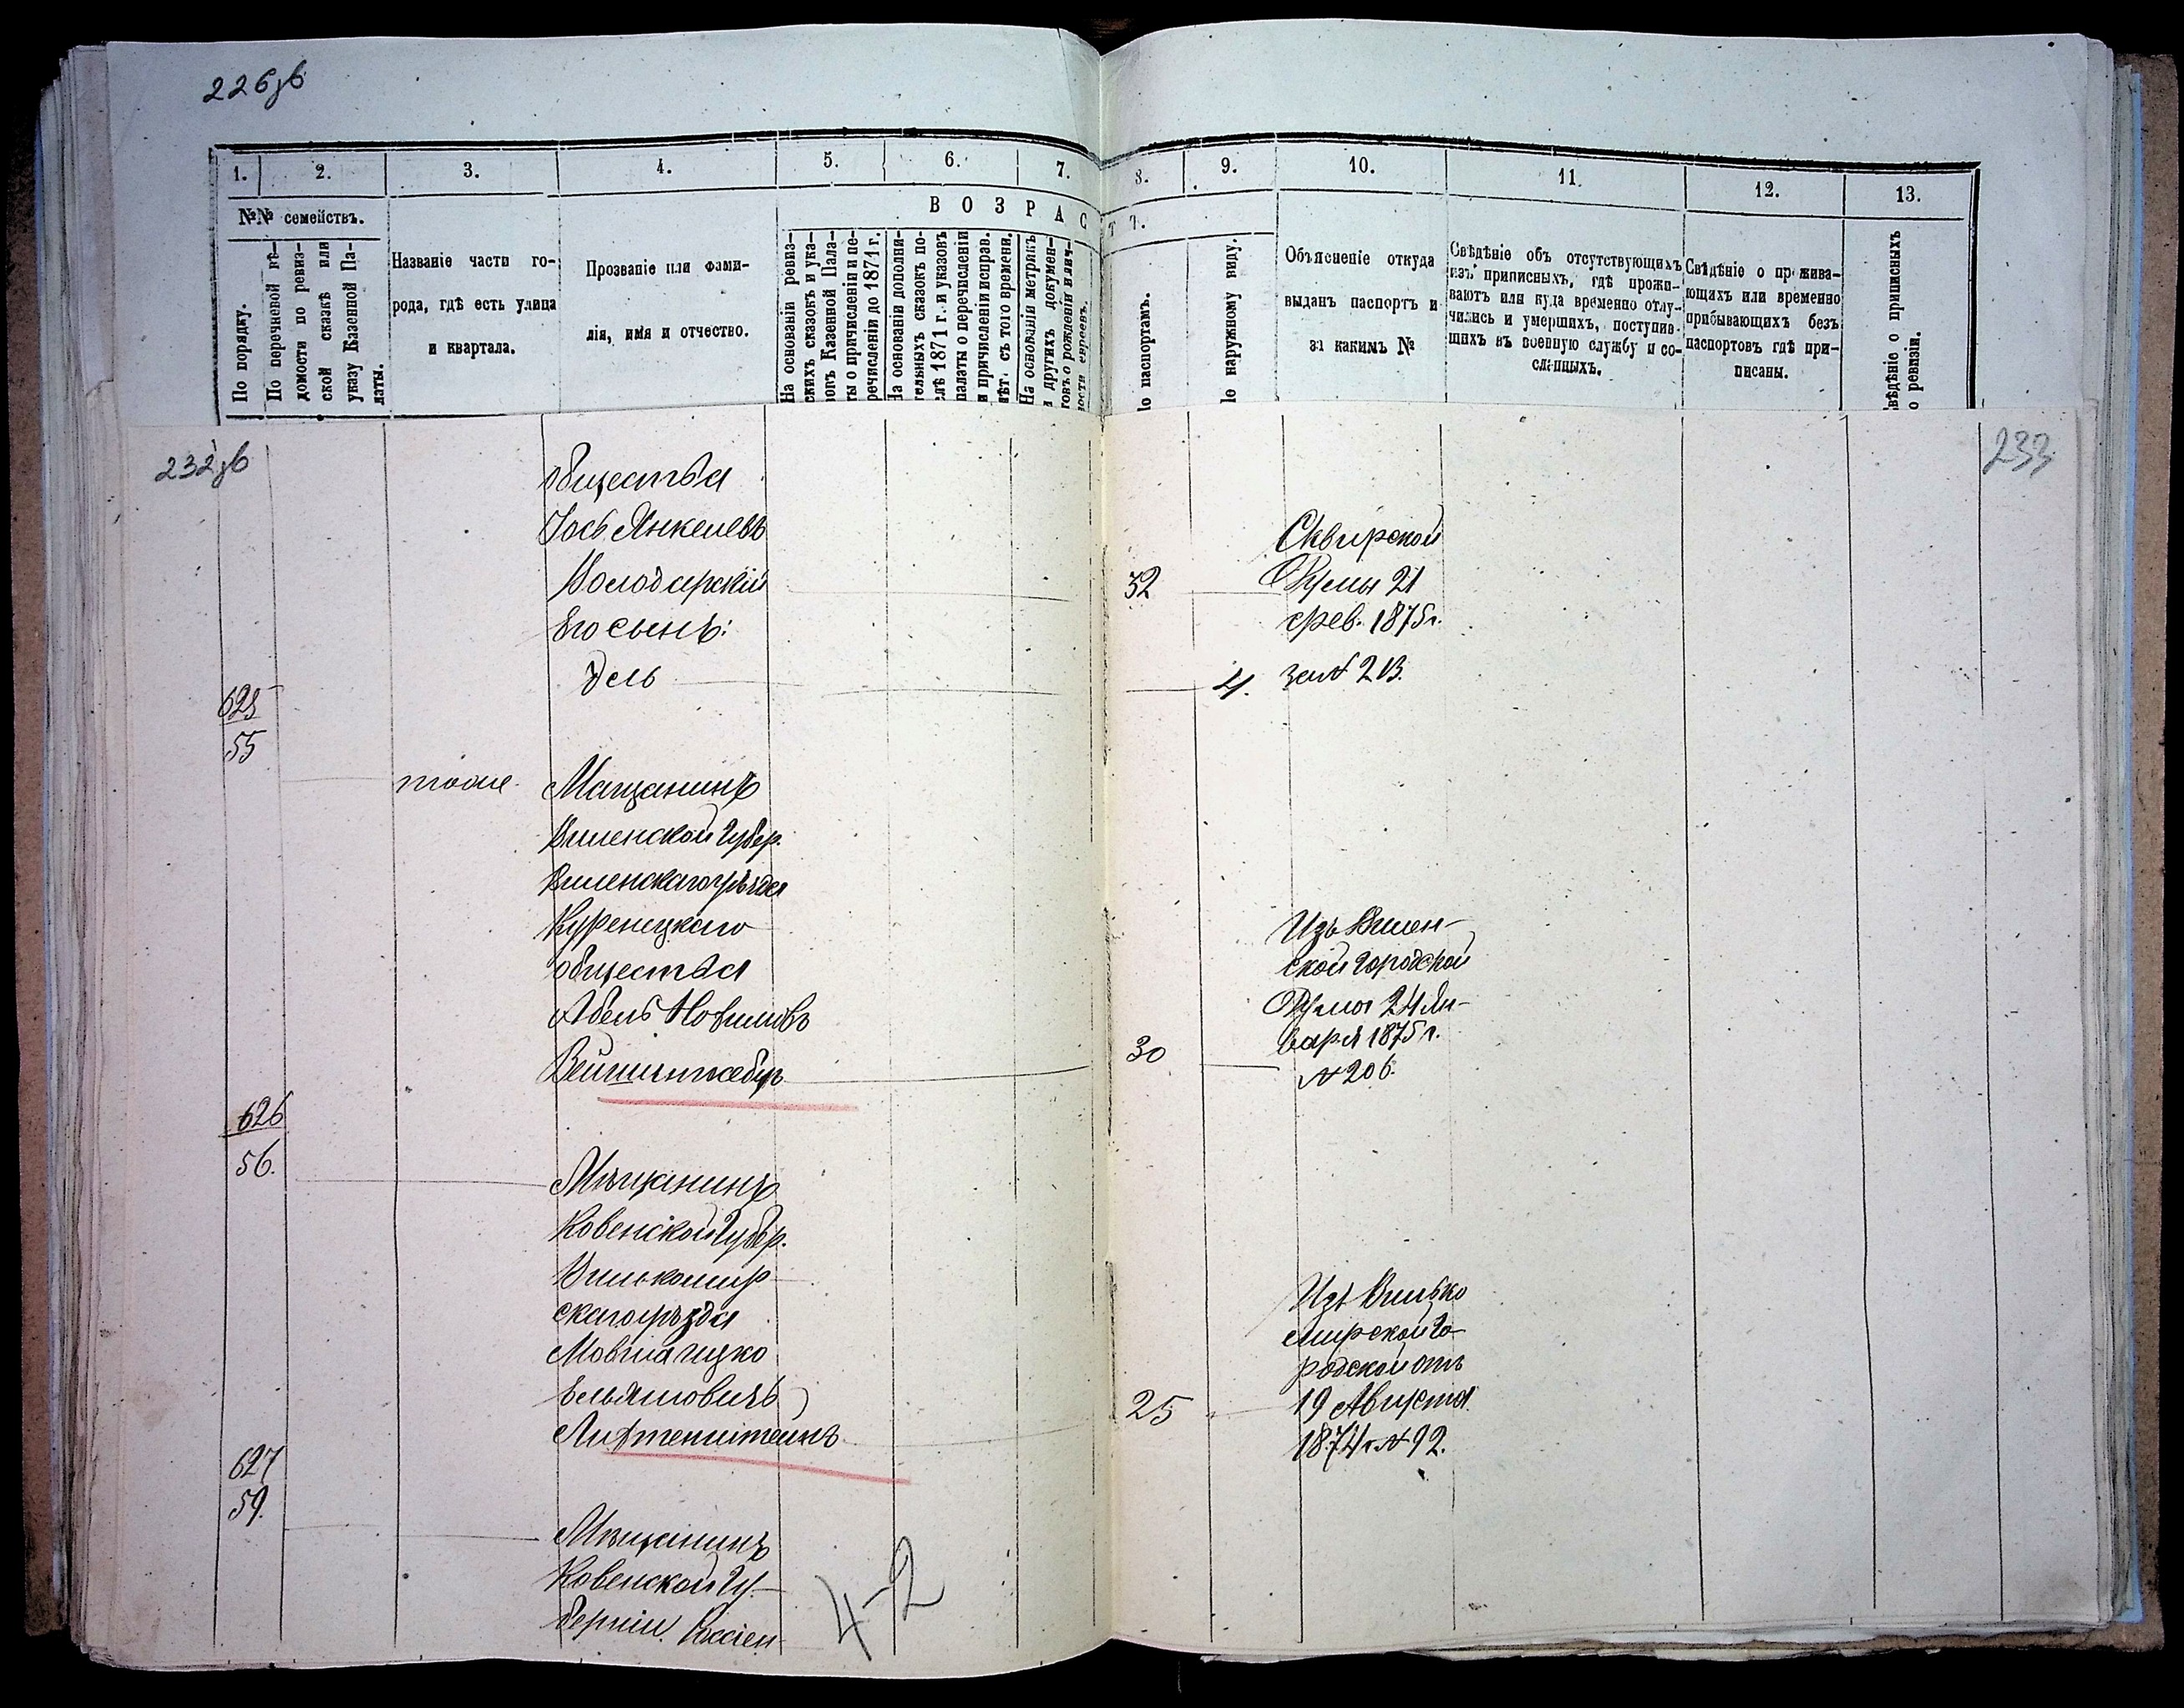 226 зв
1. 2. 3. 4. 5. 6. 7. 8. 9. 10. 11. 12. 13.
№№ семействъ.
По порядку.
По перечневой вѣ-
домости по ревиз-
ской сказкѣ или
указу Казенной Па-
латы.
Названіе части го-
рода, гдѣ есть улица
и квартала.
Прозваніе или фами-
лія, имя и отчество.
ВОЗРАСТЪ.
На основаніи ревиз-
скихъ сказокъ и ука-
зовъ Казенной Пала-
ты о причисленіи и пе-
речисленіи до 1871 г.
На основаніи дополни-
тельныхъ сказокъ по-
слѣ 1871 г. и указовъ
палаты о перечисленіи
и причисленіи исправ.
лѣт. съ того времени.
На основаніи метрикъ
и других докумен-
товъ о рожденіи и лич-
ности евреевъ.
По паспортамъ.
По наружному виду.
Объясненіе откуда
выданъ паспортъ и
за какимъ №
Свѣдѣніе объ отсутствующихъ
изъ приписныхъ, гдѣ прожи-
ваютъ или куда временно отлу-
чились и умершихъ, поступив-
шихъ въ военную службу и со-
сланныхъ.
Свѣдѣніе о прожива-
ющихъ или временно
прибывающихъ безъ
паспортовъ гдѣ при-
писаны.
Свѣдѣніе о приписныхъ
по ревизіи.
232 зв
233
общества
Іось Янкелевъ
Володарскій
32
Сквирской
Думы 21
февр. 1875 г.
Его сынъ:
Дель
4.
за № 213.
625
55
тоже
Мащанинъ
Виленской Губер.
Виленскаго уѣзда
Куренецкаго
общества
Абель Новимовъ
30
Изъ Вилен-
ской городской
Думы 24 Ян-
варя 1875 г.
№ 206.
626
56.
Мѣщанинъ
Ковенской Губер.
Вилькомир
скаго уѣзда
Мовша Ицко
Ельяшовичъ
Лифтенштейнъ
25
Изъ Вилько
мирской Го-
родской отъ
19 Августа
1874 г. № 92.
627
59.
Мѣщанинъ
Ковенской Гу-
берніи Россіен-
4-2